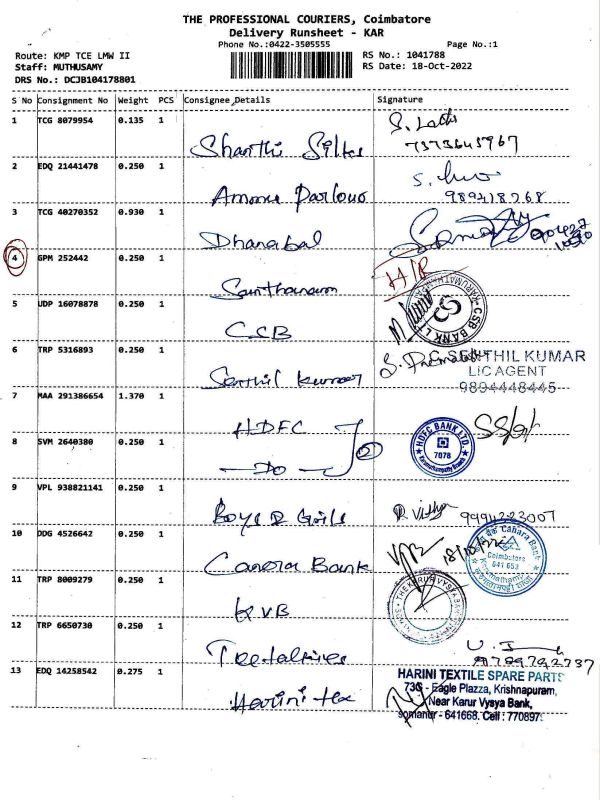 THE PROFESSIONAL COURIERS, Coimbatore
Delivery Runsheet - KAR
Phone No.:0422-3505555
Page No.:1
Route: KMP TCE LMW II
RS No.: 1041788
Staff: MUTHUSAMY
RS Date: 18-Oct-2022
DRS No.: DCJB104178801
S No Consignment No Weight PCS Consignee Details Signature
1 TCG 8079954 0.135 1
Shanthi Silks
2 EDQ 21441478 0.250 1
3 TCG 40270352 0.930 1
Dhanabal
4 GPM 252442 0.250 1
Santhanam
5 UDP 16078878 0.250 1
CSB
CSB BANK
6 TRP 5316893 0.250 1
Senthil kumar
SENTHIL KUMAR
LIC AGENT
9894448445
7 MAA 291386654 1.370 1
HDFC
HDFC BANK LTD.
7078
8 SVM 2640380 0.250 1
Do
2
9 VPL 938821141 0.250 1
Boys & Girls
9994223007
10 DDG 4526642 0.250 1
Canara Bank
18/10/22
Canara Bank
Coimbatore
641 659
11 TRP 8009279 0.250 1
KVB
THE KARUR VYSYA BANK
12 TRP 6650730 0.250 1
13 EDQ 14258542 0.275 1
Harini tex
HARINI TEXTILE SPARE PARTS
73G - Eagle Plazza, Krishnapuram,
Near Karur Vysya Bank,
somanur - 641668. Cell : 770897